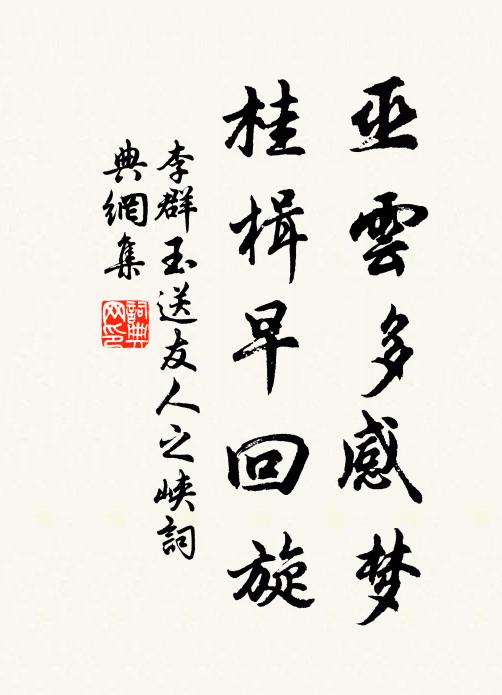 巫雲多感梦
桂楫早回旋
李群玉送友人之峡詞
典網集
詞典
网印